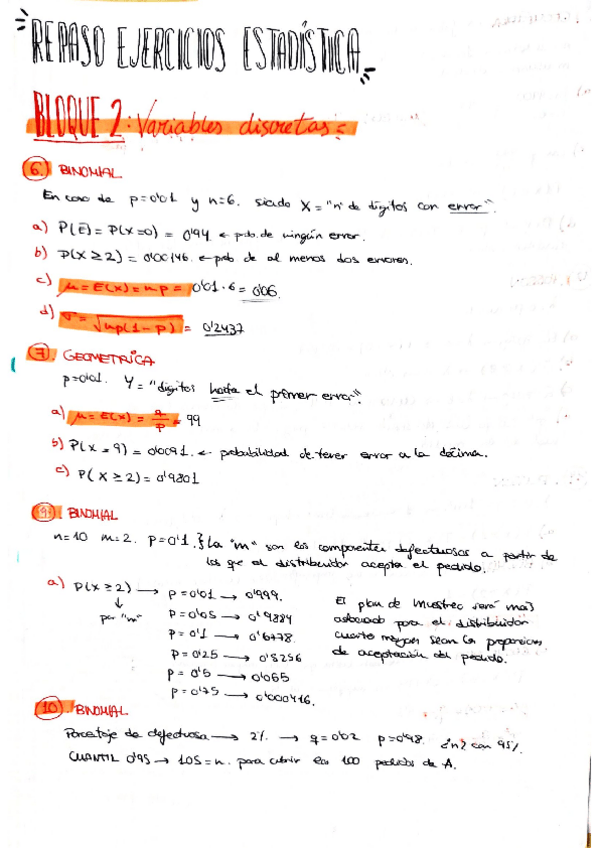 REPASO EJERCICIOS ESTADÍSTICA
BLOQUE 2: Variables discretas =
6. BINOMIAL
En caso de p=0'01 y n=6. siendo X = "nº de dígitos con error".
a) P(E) = P(X=0) = 0'94 ← prob. de ningún error.
b) P(X ≥ 2) = 0'00146. ← prob de al menos dos errores.
c) μ = E(X) = n p = 0'01 · 6 = 0'06.
d) σ = √np(1-p) = 0'2437
7. GEOMETRICA
p=0'01. Y = "dígitos hasta el primer error".
a) μ = E(X) = q/p = 99
b) P(X = 9) = 0'0091. ← probabilidad de tener error a la décima.
c) P(X ≥ 2) = 0'9801
9. BINOMIAL
n=10 m=2. p=0'1. } La "m" son los componentes defectuosos a partir de
los que el distribuidor acepta el pedido.
a) P(X ≥ 2) → p = 0'01 → 0'999.
↓
por "m"
p = 0'05 → 0'9884
p = 0'1 → 0'6778
p = 0'25 → 0'5256
p = 0'5 → 0'065
p = 0'75 → 0'000416.
El plan de muestreo será más
adecuado para el distribuidor
cuanto mayores sean las proporciones
de aceptación del pedido.
10. BINOMIAL
Porcentaje de defectuosa → 2% → q=0'02 p=0'98. ¿n? con 95%.
CUANTIL 0'95 → 105 = n. para cubrir los 100 pedidos de A.